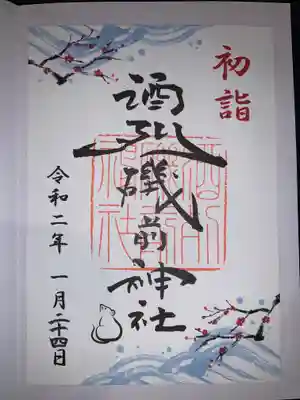 初詣
酒列磯前神社
令和二年 一月二十四日